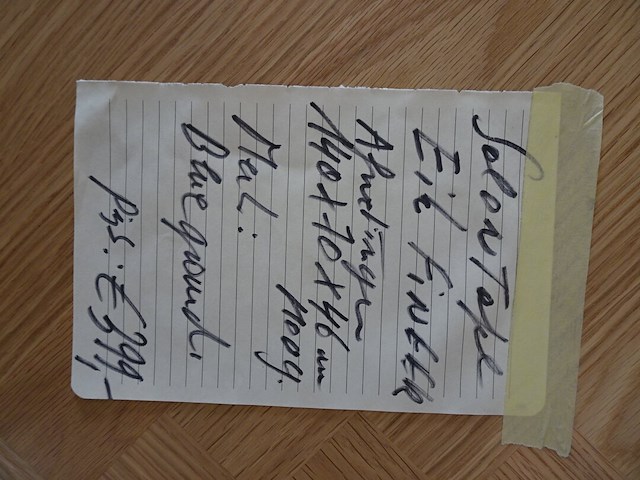 Salon Tafel
Eik FINEER
Afmetingen
140 x 70 x 46 cm
Hoog.
Merk:
Blueground.
prijs: € 399,-